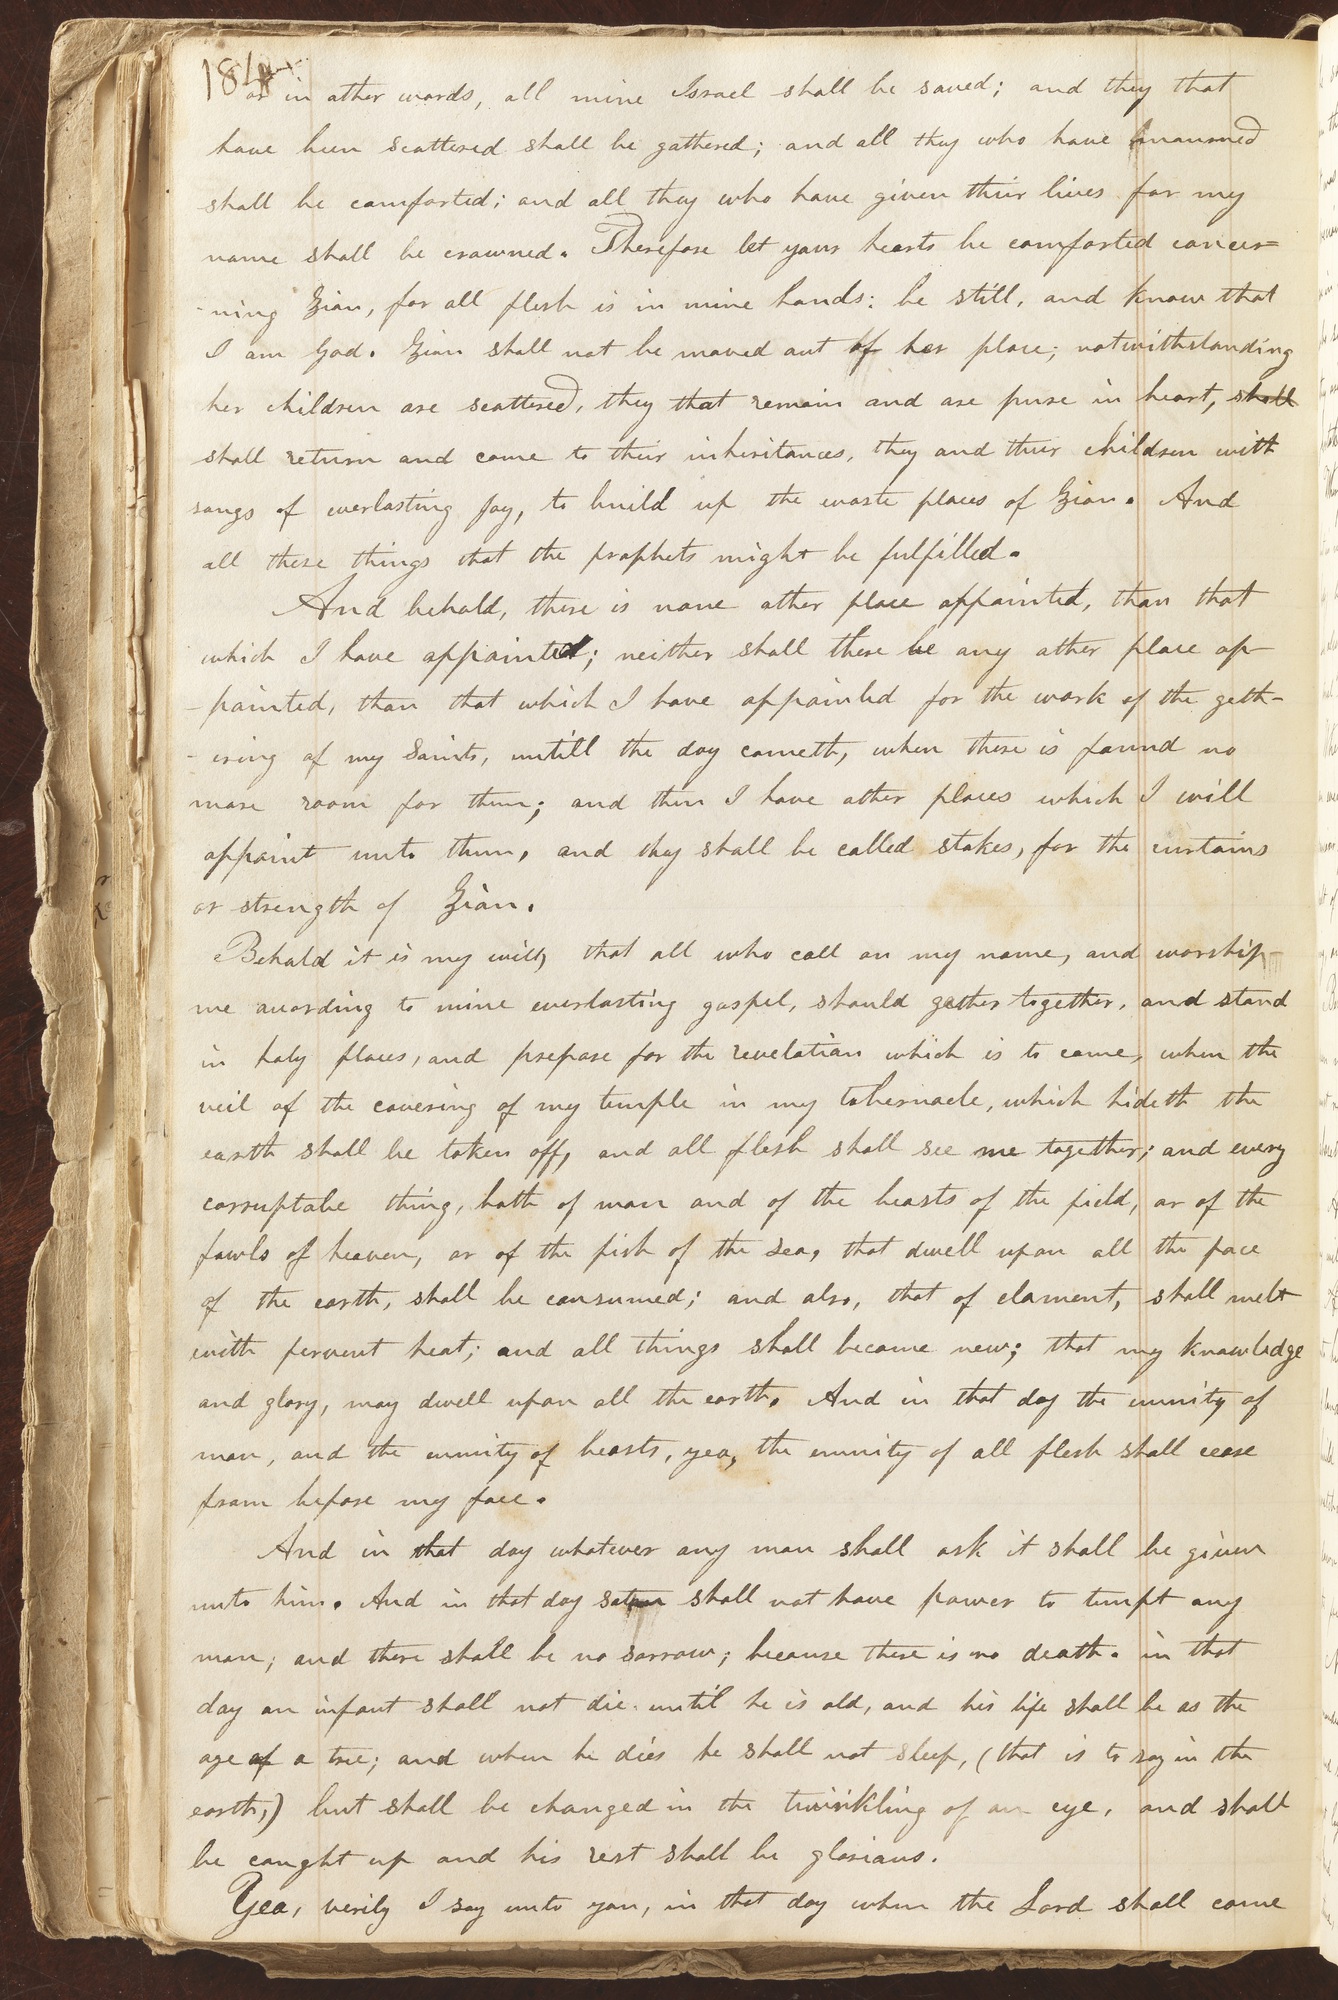 184
or in other words, all mine Israel shall be saved; and they that
have been scattered shall be gathered; and all they who have mourned
shall be comforted; and all they who have given their lives for my
name shall be crowned. Therefore let your hearts be comforted concer=
-ning Zion, for all flesh is in mine hands: be still, and know that
I am God. Zion shall not be moved out of her place; notwithstanding
her children are scattered, they that remain and are pure in heart, shall
shall return and come to their inheritances, they and their children with
songs of everlasting joy, to build up the waste places of Zion. And
all these things that the prophets might be fulfilled.
And behold, there is none other place appointed, than that
which I have appointed; neither shall there be any other place ap-
-pointed, than that which I have appointed for the work of the geth-
-ering of my Saints, untill the day cometh, when there is found no
more room for them; and then I have other places which I will
appoint unto them, and they shall be called stakes, for the curtains
or strength of Zion.
Behold it is my will, that all who call on my name, and worship-
me acording to mine everlasting gospel, should gather together, and stand
in holy places, and prepare for the revelation which is to come, when the
veil of the covering of my temple in my tabernacle, which hideth the
earth shall be taken off, and all flesh shall see me together; and every
corruptabe thing, both of man and of the beasts of the field, or of the
fowls of heaven, or of the fish of the sea, that dwell upon all the face
of the earth, shall be consumed; and also, that of elament, shall melt
with fervent heat; and all things shall become new; that my knowledge
and glory, may dwell upon all the earth. And in that day the enmity of
man, and the enmity of beasts, yea, the enmity of all flesh shall cease
from before my face.
And in that day whatever any man shall ask it shall be given
unto him. And in that day satan shall not have power to tempt any
man; and there shall be no sorrow; because there is no death. in that
day an infant shall not die until he is old, and his life shall be as the
age of a tree; and when he dies he shall not sleep, (that is to say in the
earth,) but shall be changed in the twinkling of an eye, and shall
be caught up and his rest shall be glorious.
Yea, verily I say unto you, in that day when the Lord shall come